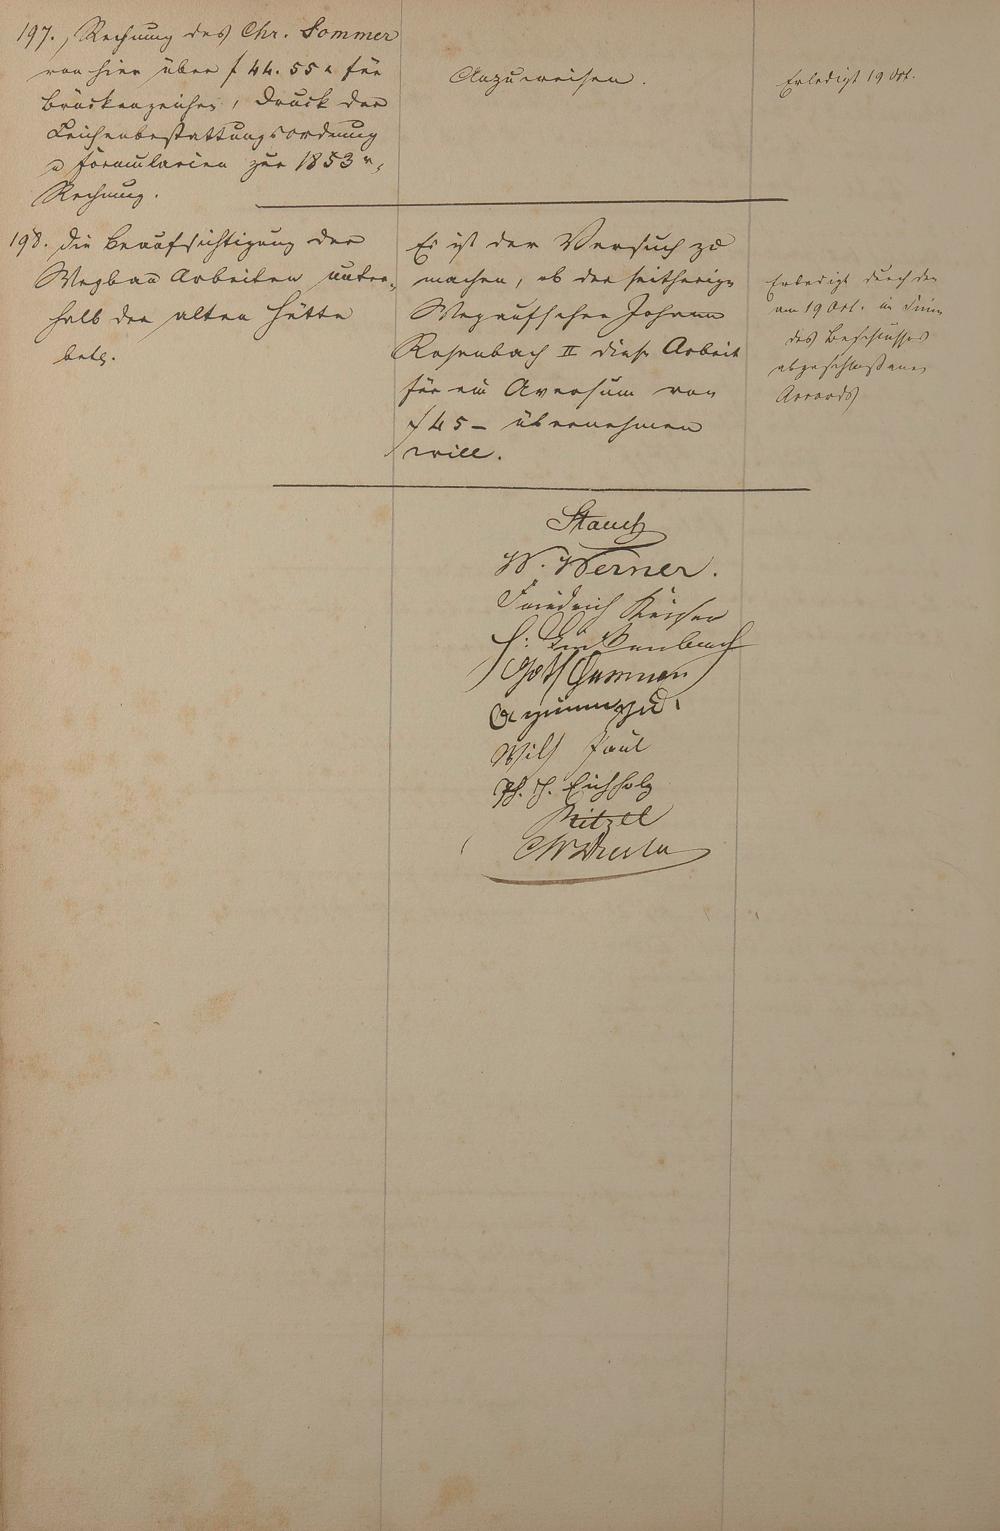 197., Rechnung des Chr. Sommer
von hier über f 44. 55 x für
Brückenzeichen, Druck der
Leichenbestattungsordnung
u Formularien zur 1853r
Rechnung.
Anzuweisen.
Erledigt 19 Oct.
198. Die Beaufsichtigung der
Wegbau Arbeiten unter-
halb der alten Hütte
betr.
Es ist der Versuch zu
machen, ob der seitherige
Wegaufseher Johann
Rosenbach II diese Arbeit
für ein Aversum von
f 45 – übernehmen
will.
Erledigt durch den
am 19 Oct. im Sinn
des Beschlusses
abgeschlossenen
Accords
Stauch
W. Werner.
Friedrich
Wilh Paul
Ph. H. Eichholz
Ritzel